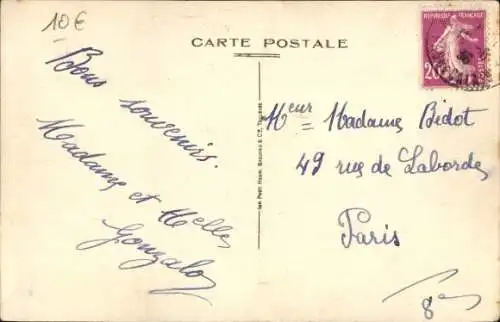 10€
CARTE POSTALE
REPUBLIQUE FRANÇAISE
20
POSTES
Bons
souvenirs.
Madame et Melles
Gonzalo
Meur = Madame Bidot
49 rue de Laborde
Paris
8e